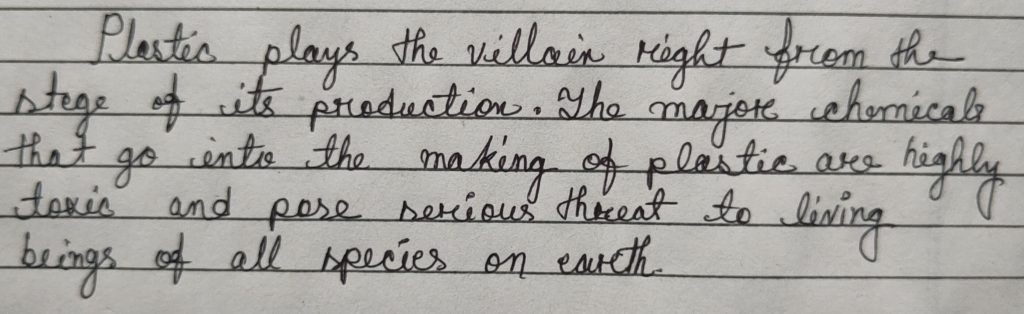 Plastic plays the villain right from the
stege of its production. The major chemicals
that go into the making of plastic are highly
toxic and pose serious threat to living
beings of all species on earth.